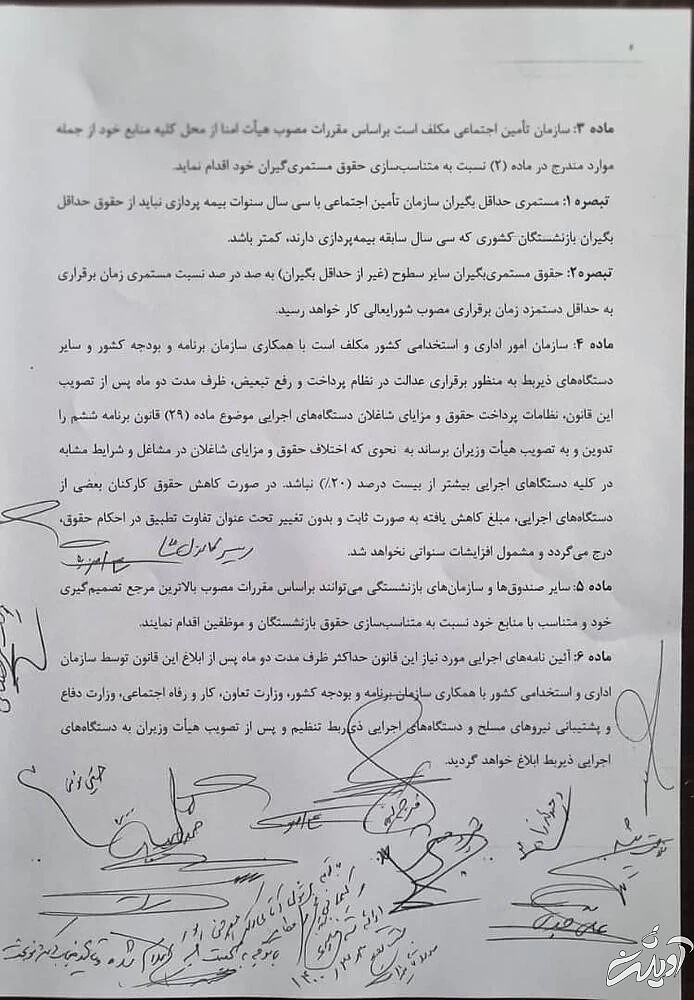 ماده ۳: سازمان تأمین اجتماعی مکلف است براساس مقررات مصوب هیأت امنا از محل کلیه منابع خود از جمله
موارد مندرج در ماده (۲) نسبت به متناسب‌سازی حقوق مستمری‌گیران خود اقدام نماید.
تبصره ۱: مستمری حداقل بگیران سازمان تأمین اجتماعی با سی سال سنوات بیمه پردازی نباید از حقوق حداقل
بگیران بازنشستگان کشوری که سی سال سابقه بیمه‌پردازی دارند، کمتر باشد.
تبصره۲: حقوق مستمری‌بگیران سایر سطوح (غیر از حداقل بگیران) به صد در صد نسبت مستمری زمان برقراری
به حداقل دستمزد زمان برقراری مصوب شورایعالی کار خواهد رسید.
ماده ۴: سازمان امور اداری و استخدامی کشور مکلف است با همکاری سازمان برنامه و بودجه کشور و سایر
دستگاه‌های ذیربط به منظور برقراری عدالت در نظام پرداخت و رفع تبعیض، ظرف مدت دو ماه پس از تصویب
این قانون، نظامات پرداخت حقوق و مزایای شاغلان دستگاه‌های اجرایی موضوع ماده (۲۹) قانون برنامه ششم را
تدوین و به تصویب هیأت وزیران برساند به نحوی که اختلاف حقوق و مزایای شاغلان در مشاغل و شرایط مشابه
در کلیه دستگاهای اجرایی بیشتر از بیست درصد (۲۰٪) نباشد. در صورت کاهش حقوق کارکنان بعضی از
دستگاه‌های اجرایی، مبلغ کاهش یافته به صورت ثابت و بدون تغییر تحت عنوان تفاوت تطبیق در احکام حقوق،
درج می‌گردد و مشمول افزایشات سنواتی نخواهد شد.
ماده ۵: سایر صندوق‌ها و سازمان‌های بازنشستگی می‌توانند براساس مقررات مصوب بالاترین مرجع تصمیم‌گیری
خود و متناسب با منابع خود نسبت به متناسب‌سازی حقوق بازنشستگان و موظفین اقدام نمایند.
ماده ۶: آئین نامه‌های اجرایی مورد نیاز این قانون حداکثر ظرف مدت دو ماه پس از ابلاغ این قانون توسط سازمان
اداری و استخدامی کشور با همکاری سازمان برنامه و بودجه کشور، وزارت تعاون، کار و رفاه اجتماعی، وزارت دفاع
و پشتیبانی نیروهای مسلح و دستگاه‌های اجرایی ذی‌ربط تنظیم و پس از تصویب هیأت وزیران به دستگاه‌های
اجرایی ذیربط ابلاغ خواهد گردید.